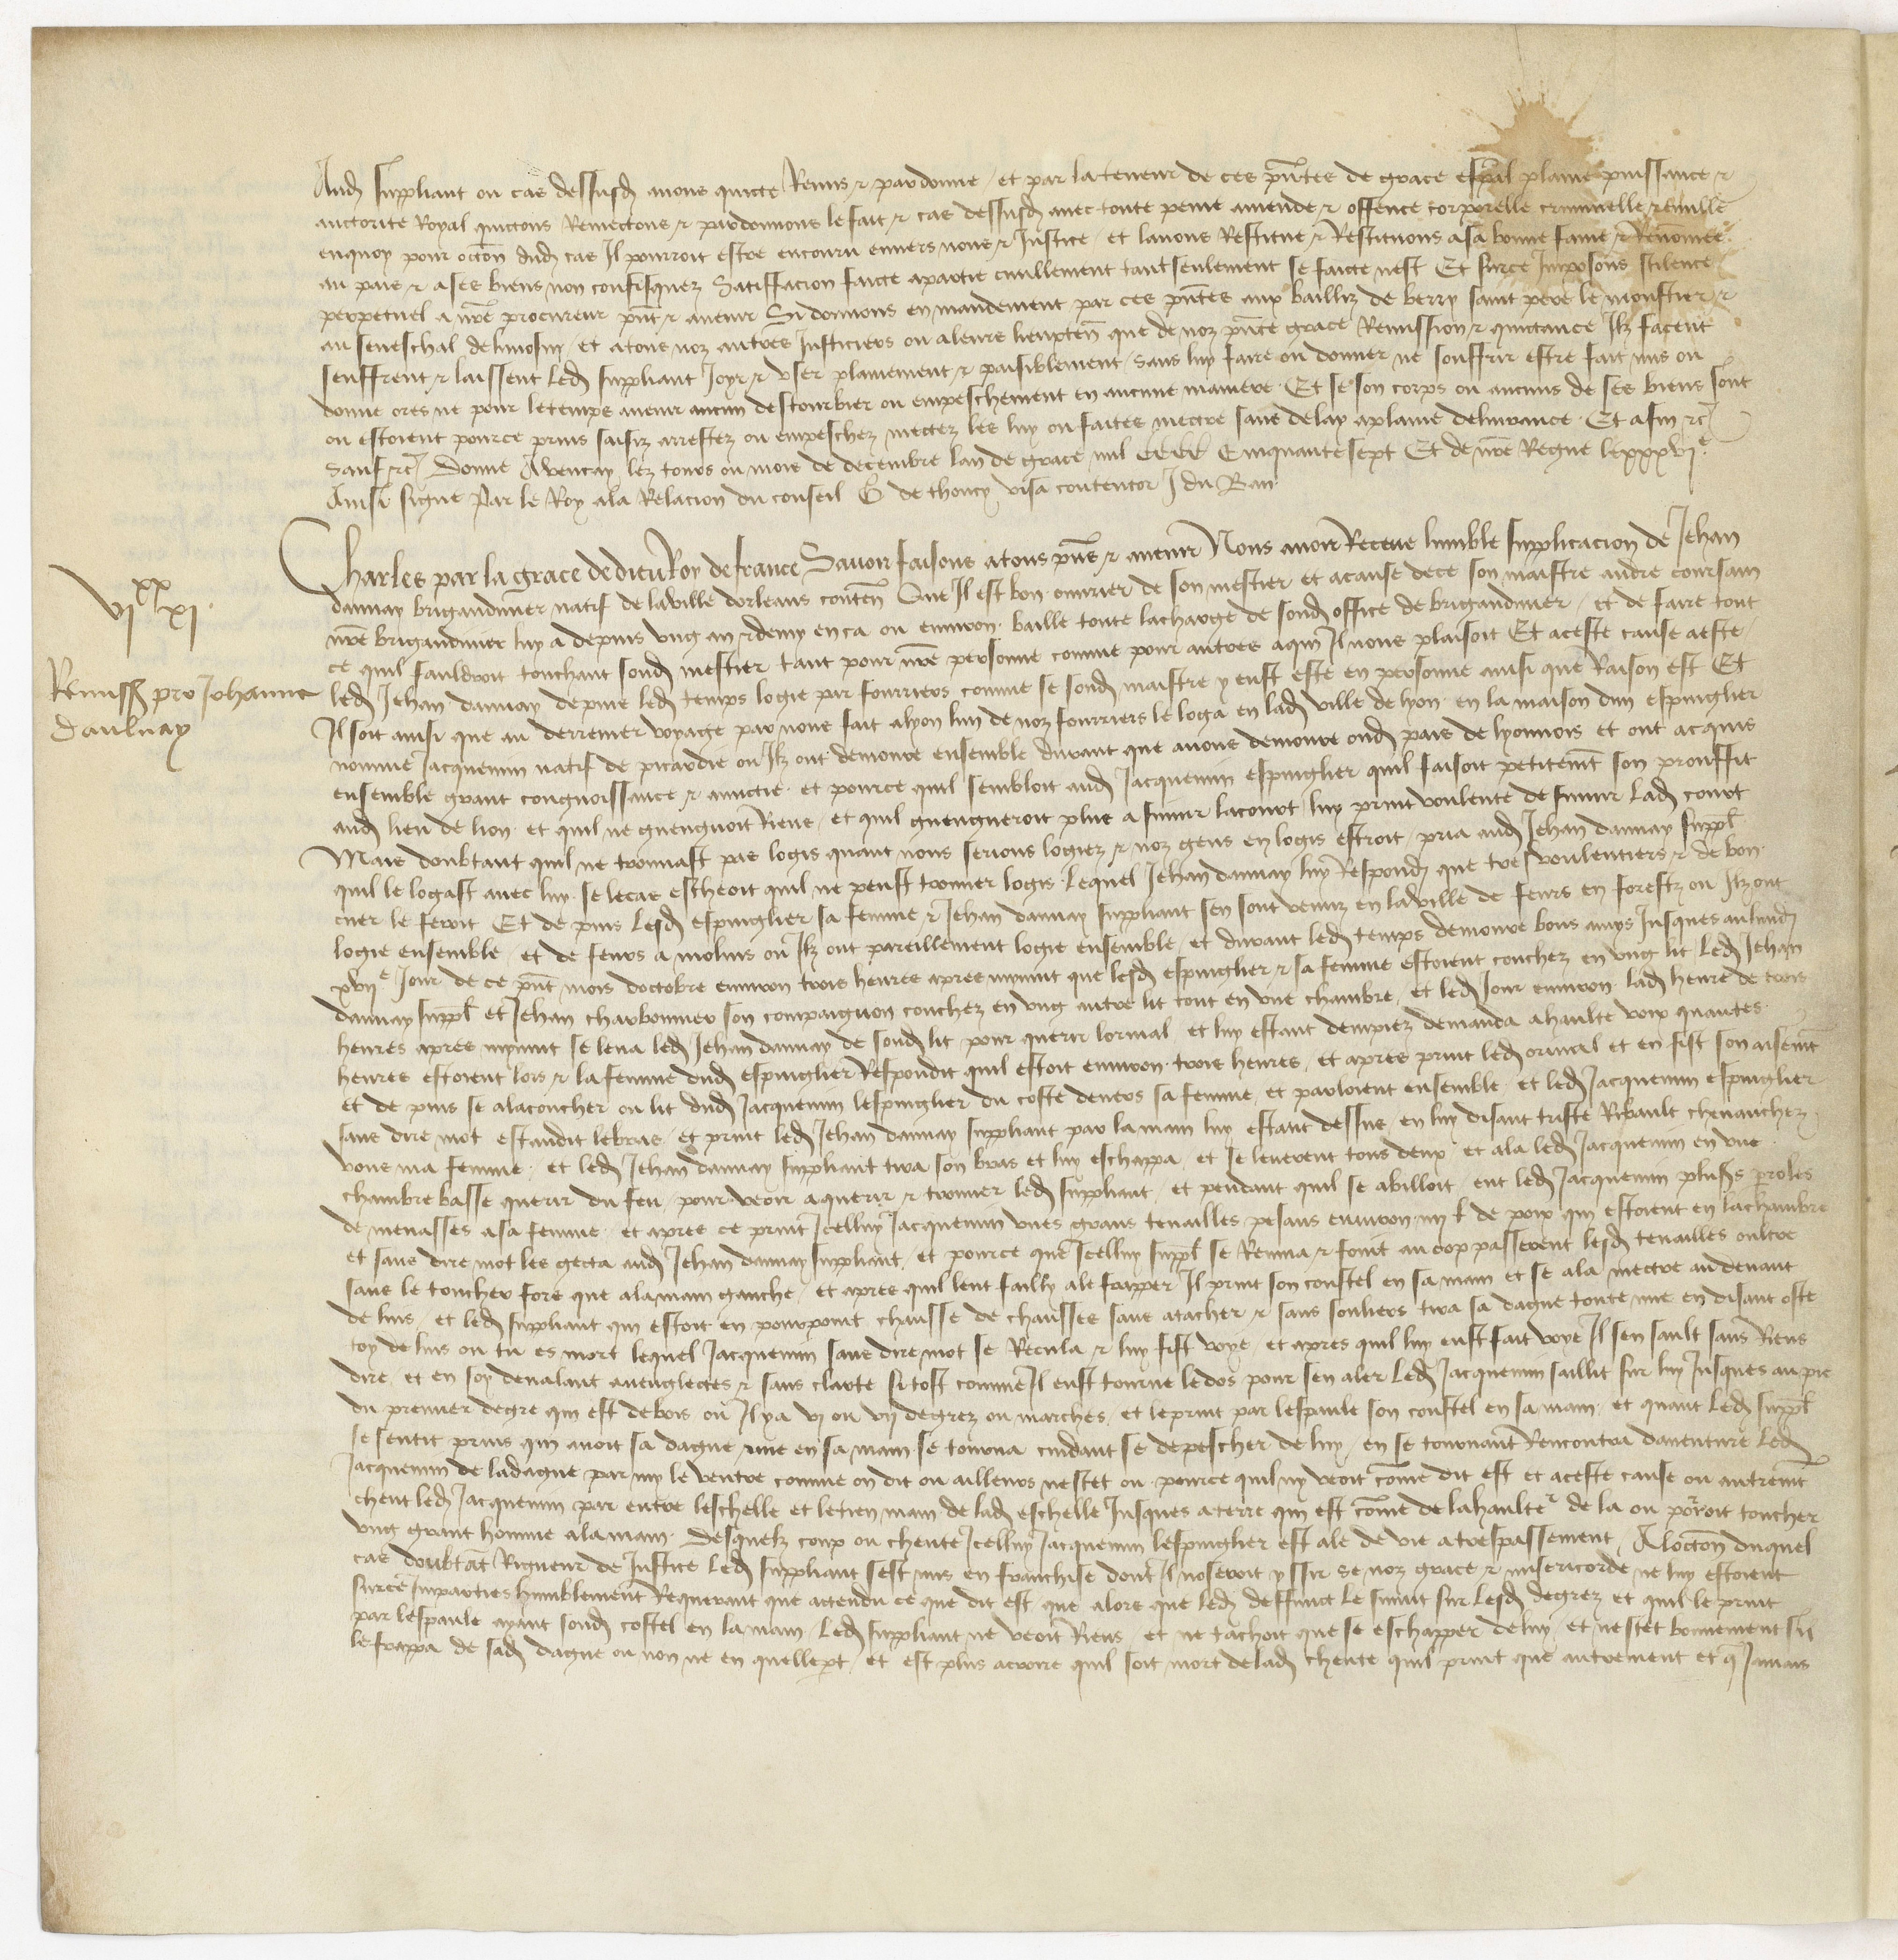 Aud suppliant ou cas dessusd avons quicte Remis & pardonne / et par la teneur de ces pntes de grace espal plaine puissance &
auctorite Royal quictons Remectons & pardonnons le fait & cas dessusd avec toute peine amende & offence corporelle criminelle & civille
enquoy pour occon dud cas Il pourroit estre encouru envers nous & Justice / et lavons Restitue & Restituons a sa bonne fame & Renomee
au pais & a ses biens non confisquez Satiffacion faicte a partie civillement tant seulement se faicte nest Et surce Imposons silence
perpetuel a nre procureur pnt & avenir Si donnons en mandement par ces pntes aux bailliz de berry saint pere le moustier &
au seneschal de limosin / et a tous noz autres Justiciers ou a leurs lieuxten que de noz pnte grace Remission & quictance Ilz facent
seuffrent & laissent led suppliant Joyr & user plainement & paisiblement / sans luy faire ou donner ne souffrir estre fait mis ou
donne ores ne pour le temps avenir aucun destourbier ou empeschement en aucune maniere Et se son corps ou aucuns de ses biens sont
ou estoient pource prins saisiz arrestez ou empeschez mectez les luy ou faites mectre sans delay a plaine delivrance Et afin &c
Sauf &c Donne A vencay lez tours ou mois de decembre lan de grace mil cccc Cinquantesept Et de nre Regne le xxxvi e
Ainsi signe Par le Roy a la Relacion du conseil G de thoucy visa contentor J du Ban
Charles par la grace de dieu Roy de france Savoir faisons a tous pns & avenir Nous avoir Receue lumble supplicacion de Jehan
daunay brigandinier natif de la ville dorleans conten Que Il est bon ouvrier de son mestier et a cause de ce son maistre andre coursain
nre brigandinier luy a depuis ung an & demy enca ou environ baille toute la charge de sond office de brigandinier / et de faire tout
ce quil fauldroit touchant sond mestier tant pour nre personne comme pour autres a qui Il nous plaisoit Et a ceste cause a este
led Jehan daunay depuis led temps logie par fourriers comme se sond maistre y eust este en personne ainsi que Raison est Et
Il soit ainsi que au derrenier voyage par nous fait a lyon lun de noz fourriers le loga en lad ville de lyon en la maison dun espinglier
nomme Jacquemin natif de picardie ou Ilz ont demoure ensemble durant que avons demoure oud pais de lyonnois et ont acquis
ensemble grant congnoissance & amictie et pource quil sembloit aud Jacquemin espinglier quil faisoit petitemt son prouffit
aud lieu de lion et quil ne guengnoit Riens / et quil guengneroit plus a suivir la court / luy print voulente de suivir lad court
Mais doubtant quil ne trouvast pas logis quant nous serions logiez & noz gens en logis estroit / pria aud Jehan daunay suppl
quil le logast avec luy se le cas escheoit quil ne peust trouver logis Lequel Jehan daunay luy Respond que tres voulentiers & de bon
cuer le feroit Et de puis Lesd espinglier sa femme & Jehan daunay suppliant sen sont venuz en la ville de feurs en forestz ou Ilz ont
logie ensemble / et de feurs a molins ou Ilz ont pareillement logie ensemble / et durant led temps demoure bons amys Jusques au lundi
xvii e Jour de ce pnt mois doctobre environ trois heures apres mynuit que lesd espinglier & sa femme estoient couchez en ung lit Led Jehan
daunay suppl et Jehan charbonnier son compaignon couchez en ung autre lit tout en une chambre / et led Jour environ lad heure de trois
heures apres mynuit se leva led Jehan daunay de sond lit pour querir lorinal et luy estant dempiez demanda a haulte voix quantes
heures estoient lors & la femme dud espinglier Respondit quil estoit environ trois heures / et apres print led orinal et en fist son aisemt
et de puis se ala coucher ou lit dud Jacquemin lespinglier du coste devers sa femme / et parloient ensemble et led Jacquemin espinglier
sans dire mot estandit le bras / et print led Jehan daunay suppliant par la main luy estant dessus / en luy disant triste Ribault chevauchez
vous ma femme / et led Jehan daunay suppliant tira son bras et luy eschappa / et se leverent tous deux et ala led Jacquemin en une
chambre basse querir du feu / pour veoir a querir & trouver led suppliant / et pendant quil se abilloit eut led Jacquemin plusrs proles
de menasses a sa femme et apres ce print Icelluy Jacquemin unes grans tenailles pesans environ iiii l de poix qui estoient en la chambre
et sans dire mot les gecta aud Jehan daunay suppliant / et pource que Icelluy suppl se Remua & fouit au cop passerent lesd tenailles oultre
sans le toucher fors que a la main gauche / et apres quil leut failly a le frapper Il print son coustel en sa main et se ala mectre au devant
de luis / et led suppliant qui estoit en pourpoint chausse de chausses sans atacher & sans souliers tira sa dague toute nue en disant oste
toy de luis ou tu es mort lequel Jacquemin sans dire mot se Recula & luy fist voye / et apres quil luy eust fait voye Il sen sault sans Riens
dire / et en soy devalant aveuglectes & sans clarte si tost comme Il eust tourne le dos pour sen aler Led Jacquemin saillit sur luy Jusques au pie
du premier degre qui est de bois ou Il y a vi ou vii degrez ou marches / et le print par lespaule son coustel en sa main et quant Led suppl
se sentit prins qui avoit sa dague nue en sa main se tourna cuidant se depescher de luy / en se tournant Rencontra daventure Led
Jacquemin de la dague par my le ventre comme on dit ou ailleurs ne scet ou pource quil ny veoit come dit est et a ceste cause ou autremt
cheut led Jacquemin par entre leschelle et letien main de lad eschelle Jusques a terre qui est come de la haulte r de la ou porroit toucher
ung grant homme a la main Desquelz coup ou cheute Icelluy Jacquemin lespinglier est ale de vie a trespassement / A loccon duquel
cas doubtat Rigueur de Justice Led suppliant sest mis en franchise dont Il noseroit yssir se noz grace & misericorde ne luy estoient
surce Imparties humblement Requerant que actendu ce que dit est que alors que led deffunct le suivit sur Lesd degrez et quil le print
par lespaule ayant sond costel en la main / Led suppliant ne veoit Riens / et ne tachoit que se eschapper de luy / et ne scet bonnement sil
le frappa de sad dague ou non ne en quelle pt / et est plus a croire quil soit mort de lad cheute quil print que autrement et q Jamais
VI xx XI
Remiss pro Johanne
Daulnay